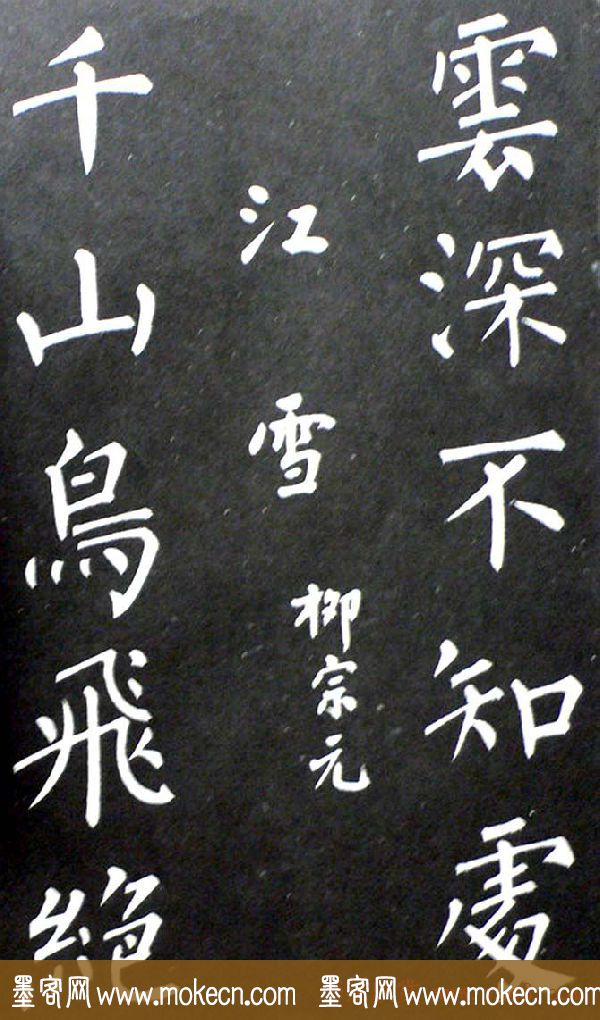 雲深不知處
江雪
柳宗元
千山鳥飛絕
墨客网 www.mokecn.com 墨客网 www.mokecn.com